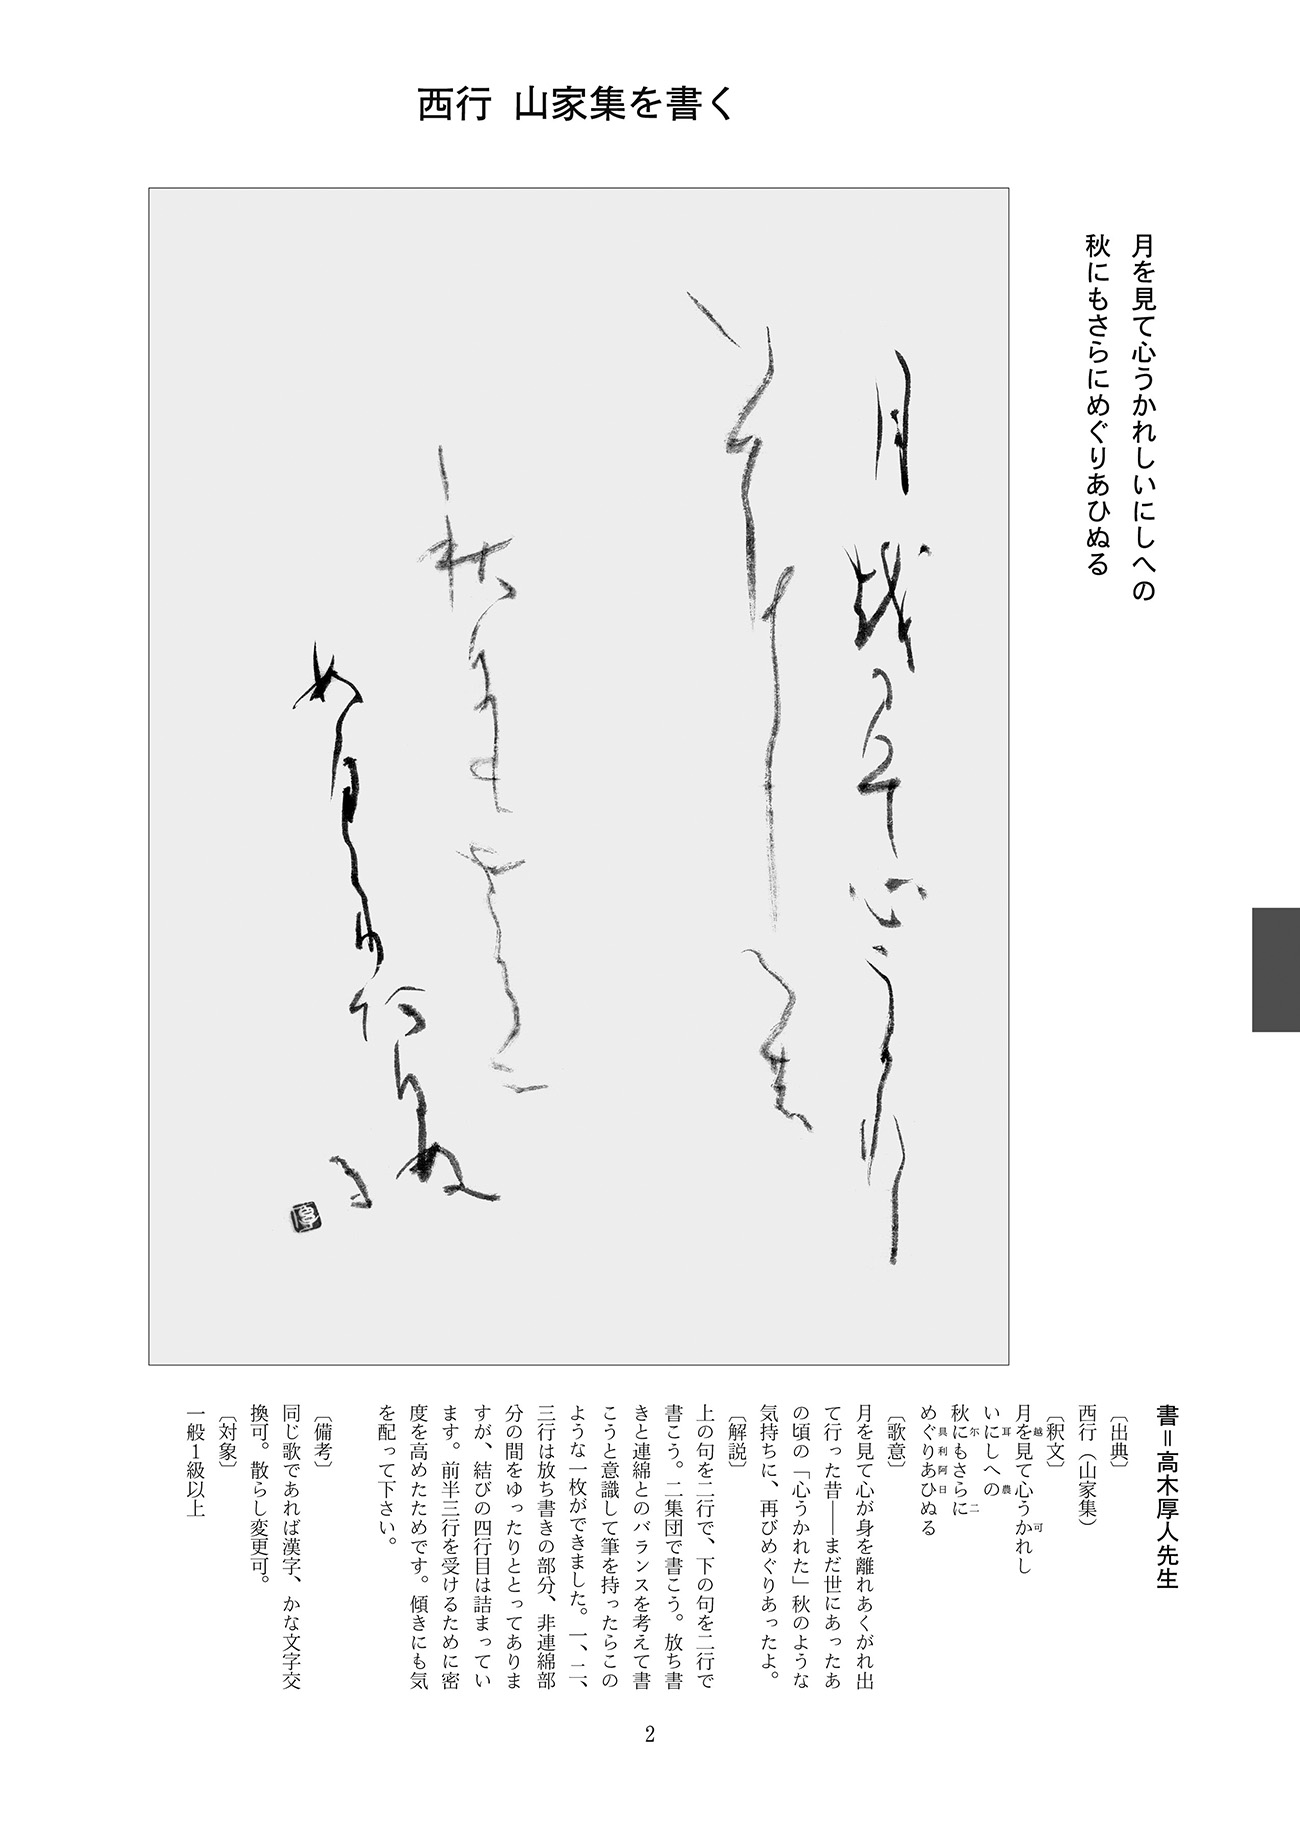 西行 山家集を書く
月を見て心うかれしいにしへの
秋にもさらにめぐりあひぬる
月越見て心う可れ
し
いにし
へ農
秋尓も
さら二
めぐりあひぬ
る
書＝高木厚人先生
〔出典〕
西行（山家集）
〔釈文〕
月を見て心うかれし
越 可
いにしへの
耳 農
秋にもさらに
尓 二
めぐりあひぬる
具利阿日
〔歌意〕
月を見て心が身を離れあくがれ出
て行った昔――まだ世にあったあ
の頃の「心うかれた」秋のような
気持ちに、再びめぐりあったよ。
〔解説〕
上の句を二行で、下の句を二行で
書こう。二集団で書こう。放ち書
きと連綿とのバランスを考えて書
こうと意識して筆を持ったらこの
ような一枚ができました。一、二、
三行は放ち書きの部分、非連綿部
分の間をゆったりととってありま
すが、結びの四行目は詰まってい
ます。前半三行を受けるために密
度を高めたためです。傾きにも気
を配って下さい。
〔備考〕
同じ歌であれば漢字、かな文字交
換可。散らし変更可。
〔対象〕
一般１級以上
2